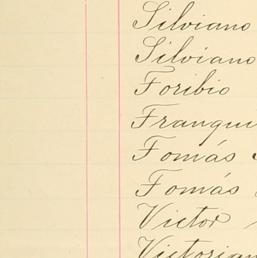 Silviano
Silviano
Toribio
Tranqui
Tomás
Tomás
Victor
Victorian